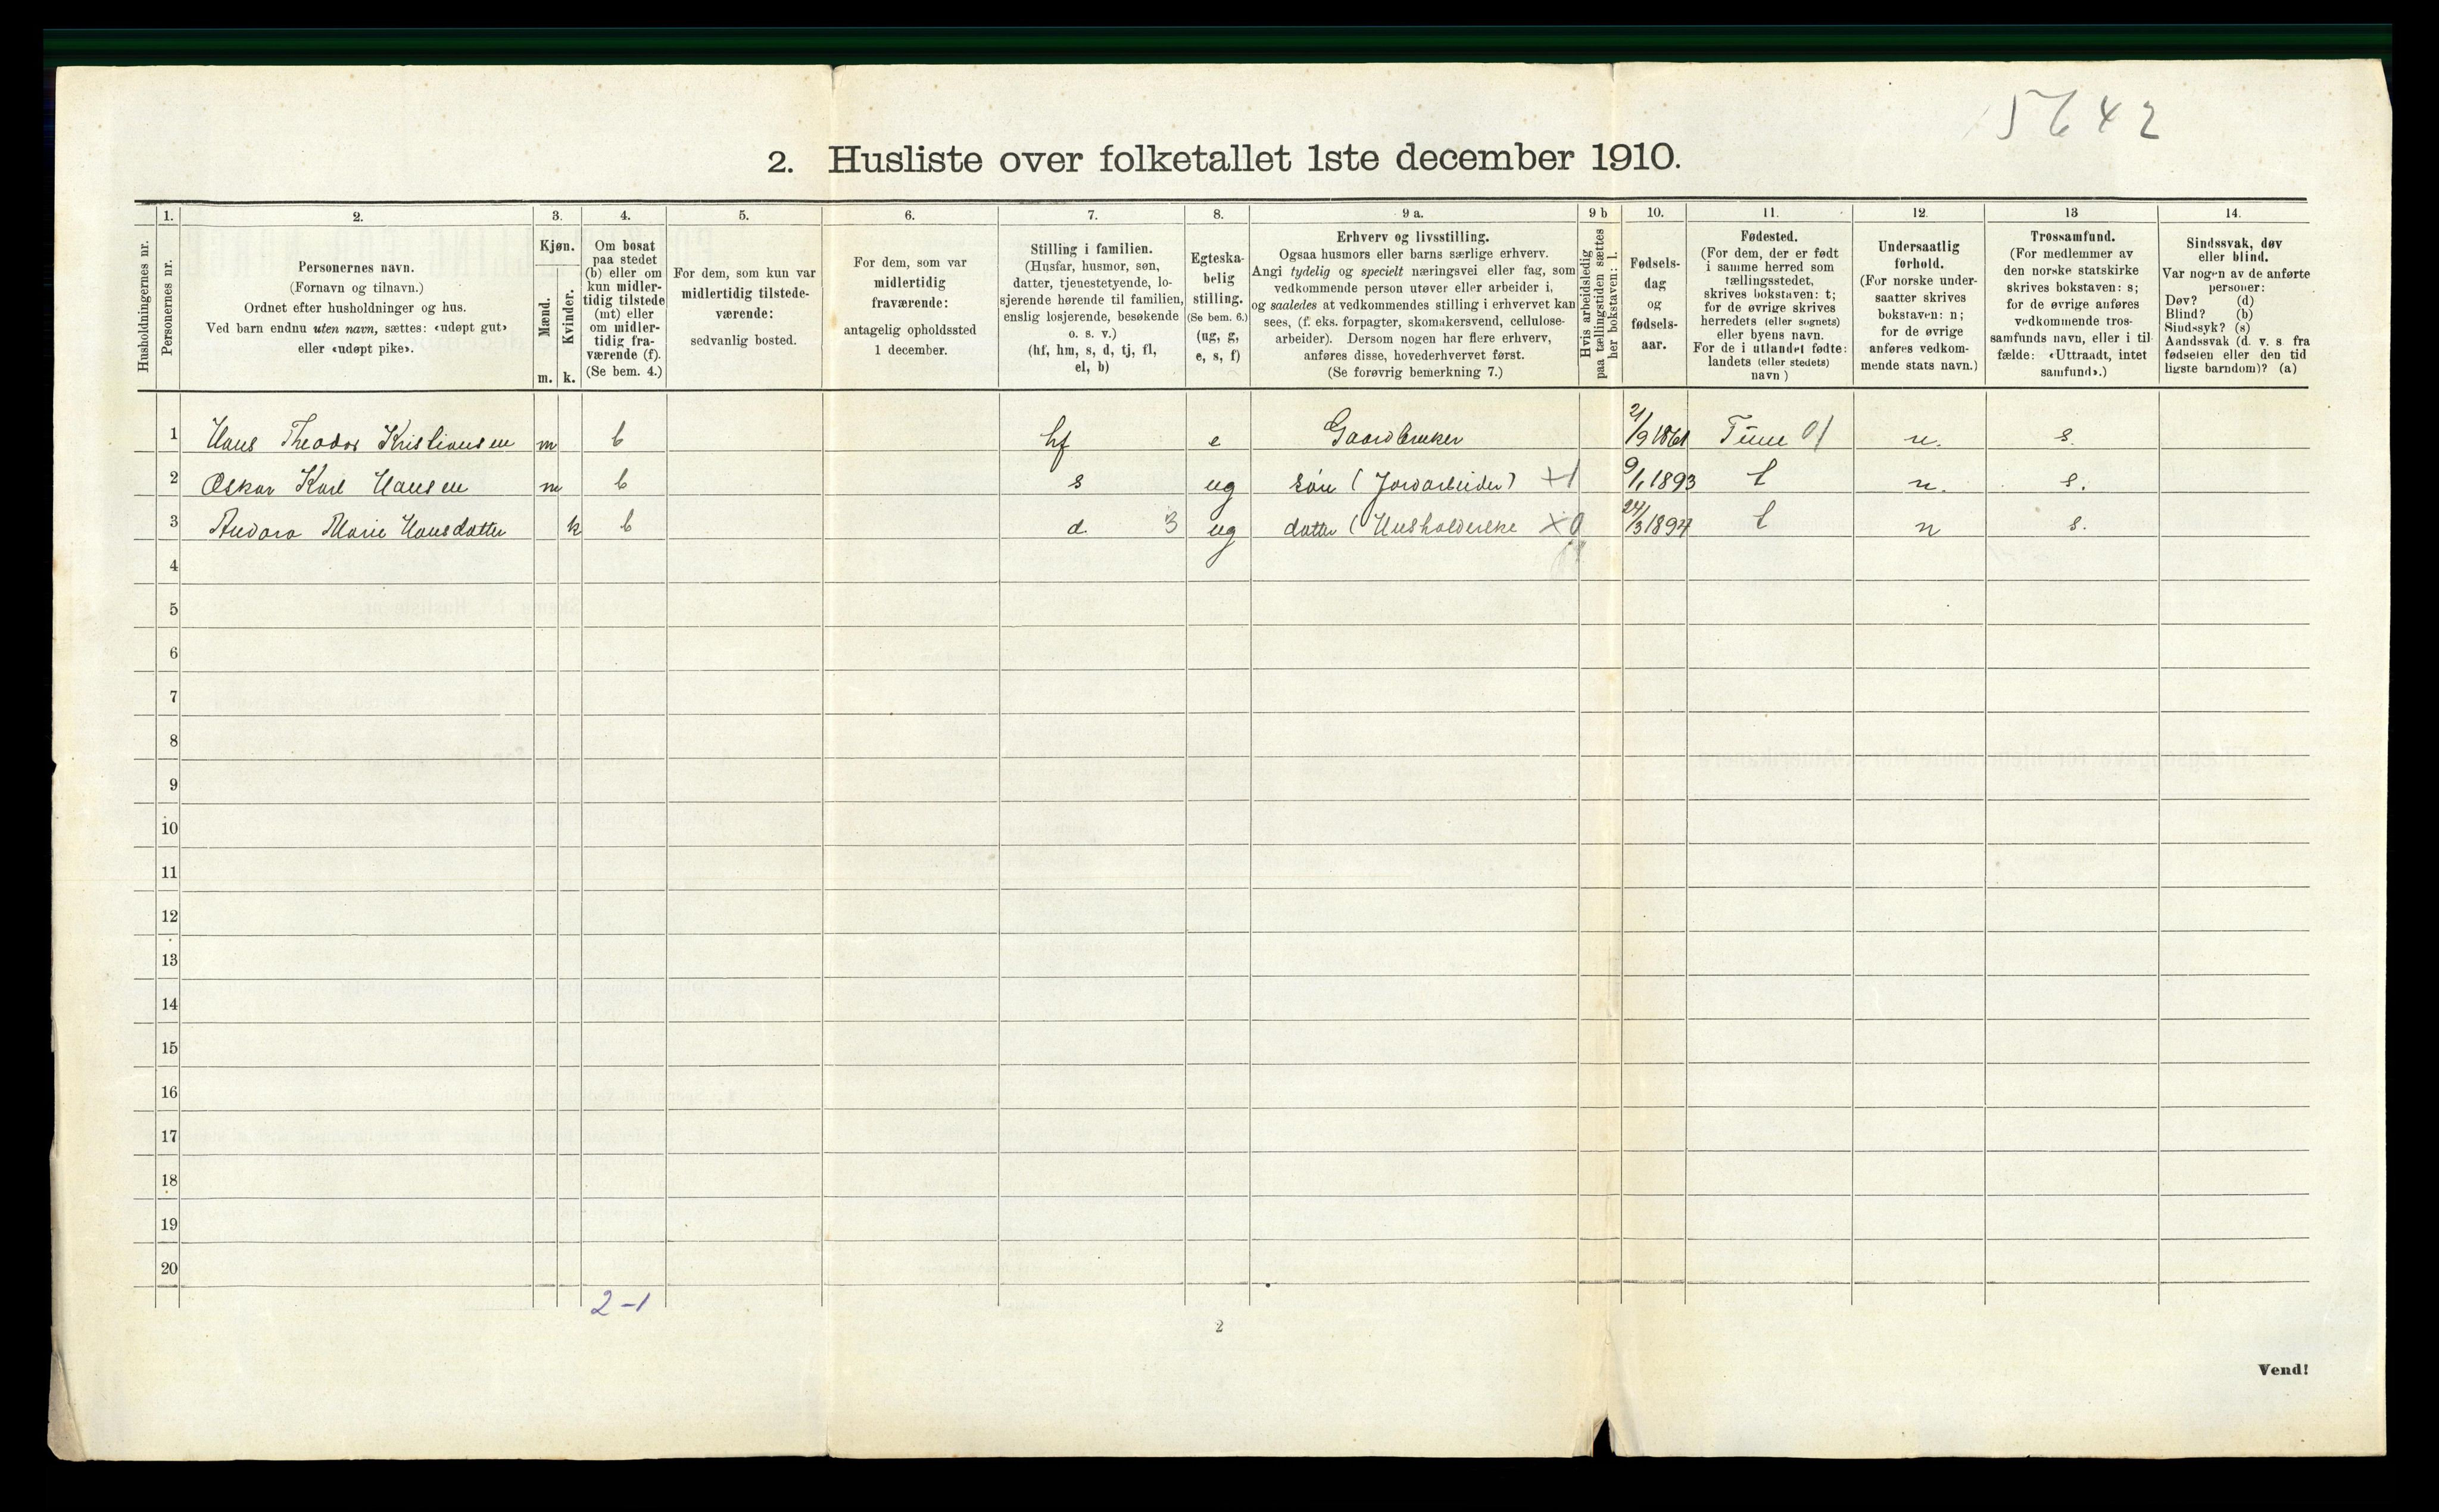 5642
2. Husliste over folketallet 1ste december 1910.
Husholdningernes nr.
1.
Personernes nr.
2.
Personernes navn.
(Fornavn og tilnavn.)
Ordnet efter husholdninger og hus.
Ved barn endnu uten navn, sættes: «udøpt gut»
eller «udøpt pike».
3.
Kjøn.
Mænd.
Kvinder.
m. k.
4.
Om bosat
paa stedet
(b) eller om
kun midler-
tidig tilstede
(mt) eller
om midler-
tidig fra-
værende (f).
(Se bem. 4.)
5.
For dem, som kun var
midlertidig tilstede-
værende:
sedvanlig bosted.
6.
For dem, som var
midlertidig
fraværende:
antagelig opholdssted
1 december.
7.
Stilling i familien.
(Husfar, husmor, søn,
datter, tjenestetyende, lo-
sjerende hørende til familien,
enslig losjerende, besøkende
o. s. v.)
(hf, hm, s, d, tj, fl,
el, b)
8.
Egteska-
belig
stilling.
(Se bem. 6.)
(ug, g,
e, s, f)
9 a.
Erhverv og livsstilling.
Ogsaa husmors eller barns særlige erhverv.
Angi tydelig og specielt næringsvei eller fag, som
vedkommende person utøver eller arbeider i,
og saaledes at vedkommendes stilling i erhvervet kan
sees, (f. eks. forpagter, skomakersvend, cellulose-
arbeider). Dersom nogen har flere erhverv,
anføres disse, hovederhvervet først.
(Se forøvrig bemerkning 7.)
9 b
Hvis arbeidsledig
paa tællingstiden sættes
her bokstaven: l.
10.
Fødsels-
dag
og
fødsels-
aar.
11.
Fødested.
(For dem, der er født
i samme herred som
tællingsstedet,
skrives bokstaven: t;
for de øvrige skrives
herredets (eller sognets)
eller byens navn.
For de i utlandet fødte:
landets (eller stedets)
navn )
12.
Undersaatlig
forhold.
(For norske under-
saatter skrives
bokstaven: n;
for de øvrige
anføres vedkom-
mende stats navn.)
13
Trossamfund.
(For medlemmer av
den norske statskirke
skrives bokstaven: s;
for de øvrige anføres
vedkommende tros-
samfunds navn, eller i til-
fælde: «Uttraadt, intet
samfund».)
14.
Sindssvak, døv
eller blind.
Var nogen av de anførte
personer:
Døv? (d)
Blind? (b)
Sindssyk? (s)
Aandssvak (d. v. s. fra
fødselen eller den tid
ligste barndom)? (a)
1 Hans Theodor Kristiansen m b hf e Gaardbruker 21/9 1861 Tune 01 n. s.
2 Oskar Karl Hansen m b s ug søn (Jordarbeider) x1 9/1 1893 t n. s.
3 Andora Marie Hansdatter k b d. 3 ug datter (Husholderske x0 24/3 1894 t n s.
4
5
6
7
8
9
10
11
12
13
14
15
16
17
18
19
20
2-1
2
Vend!